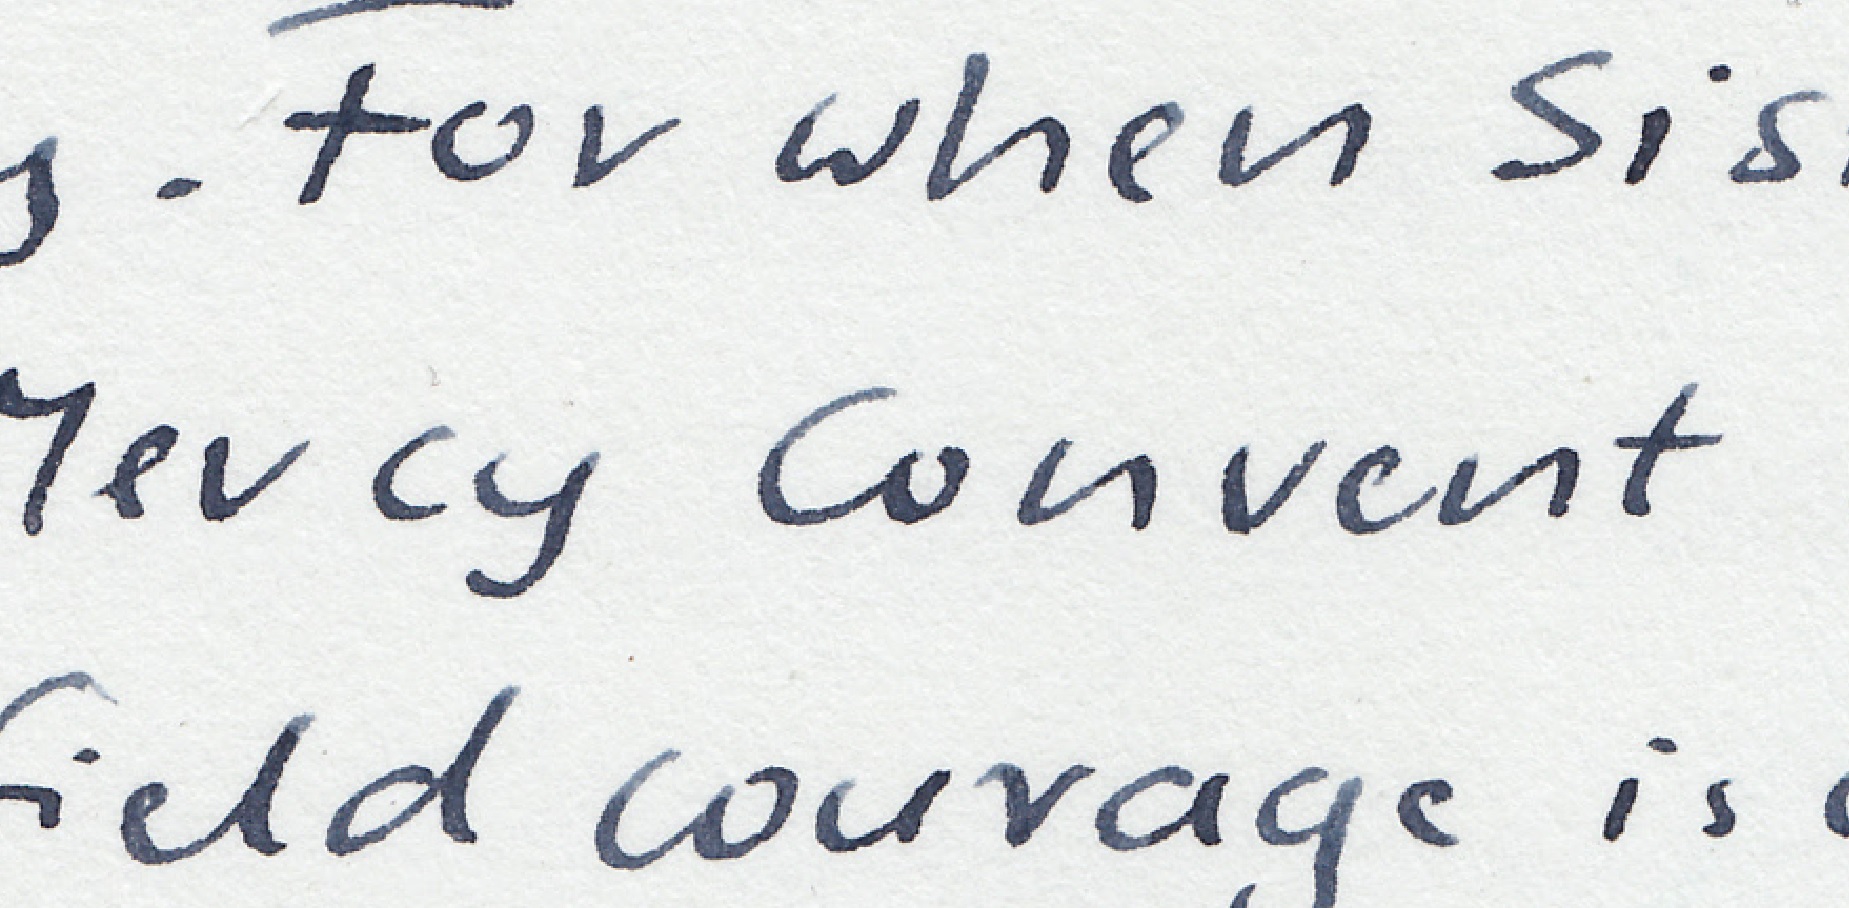 . For when
Mercy Convent
field courage is